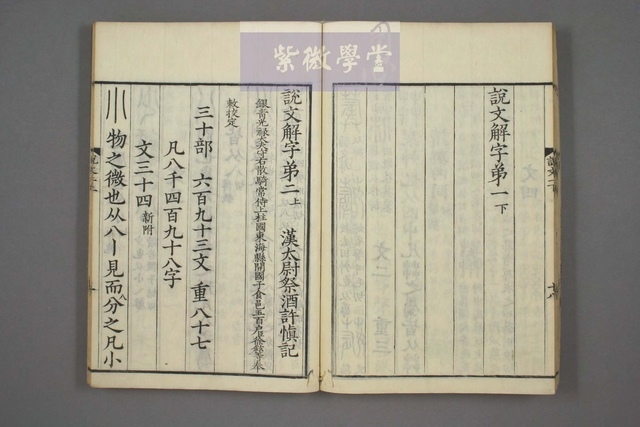 紫微學堂
說文解字弟一下
說文解字弟二上 漢太尉祭酒許慎記
銀青光祿大夫守右散騎常侍上柱國東海縣開國子食邑五百戶臣徐鉉等奉
敕校定
三十部 六百九十三文 重八十七
凡八千四百九十八字
文三十四新附
川 物之微也从八丨見而八分之凡小